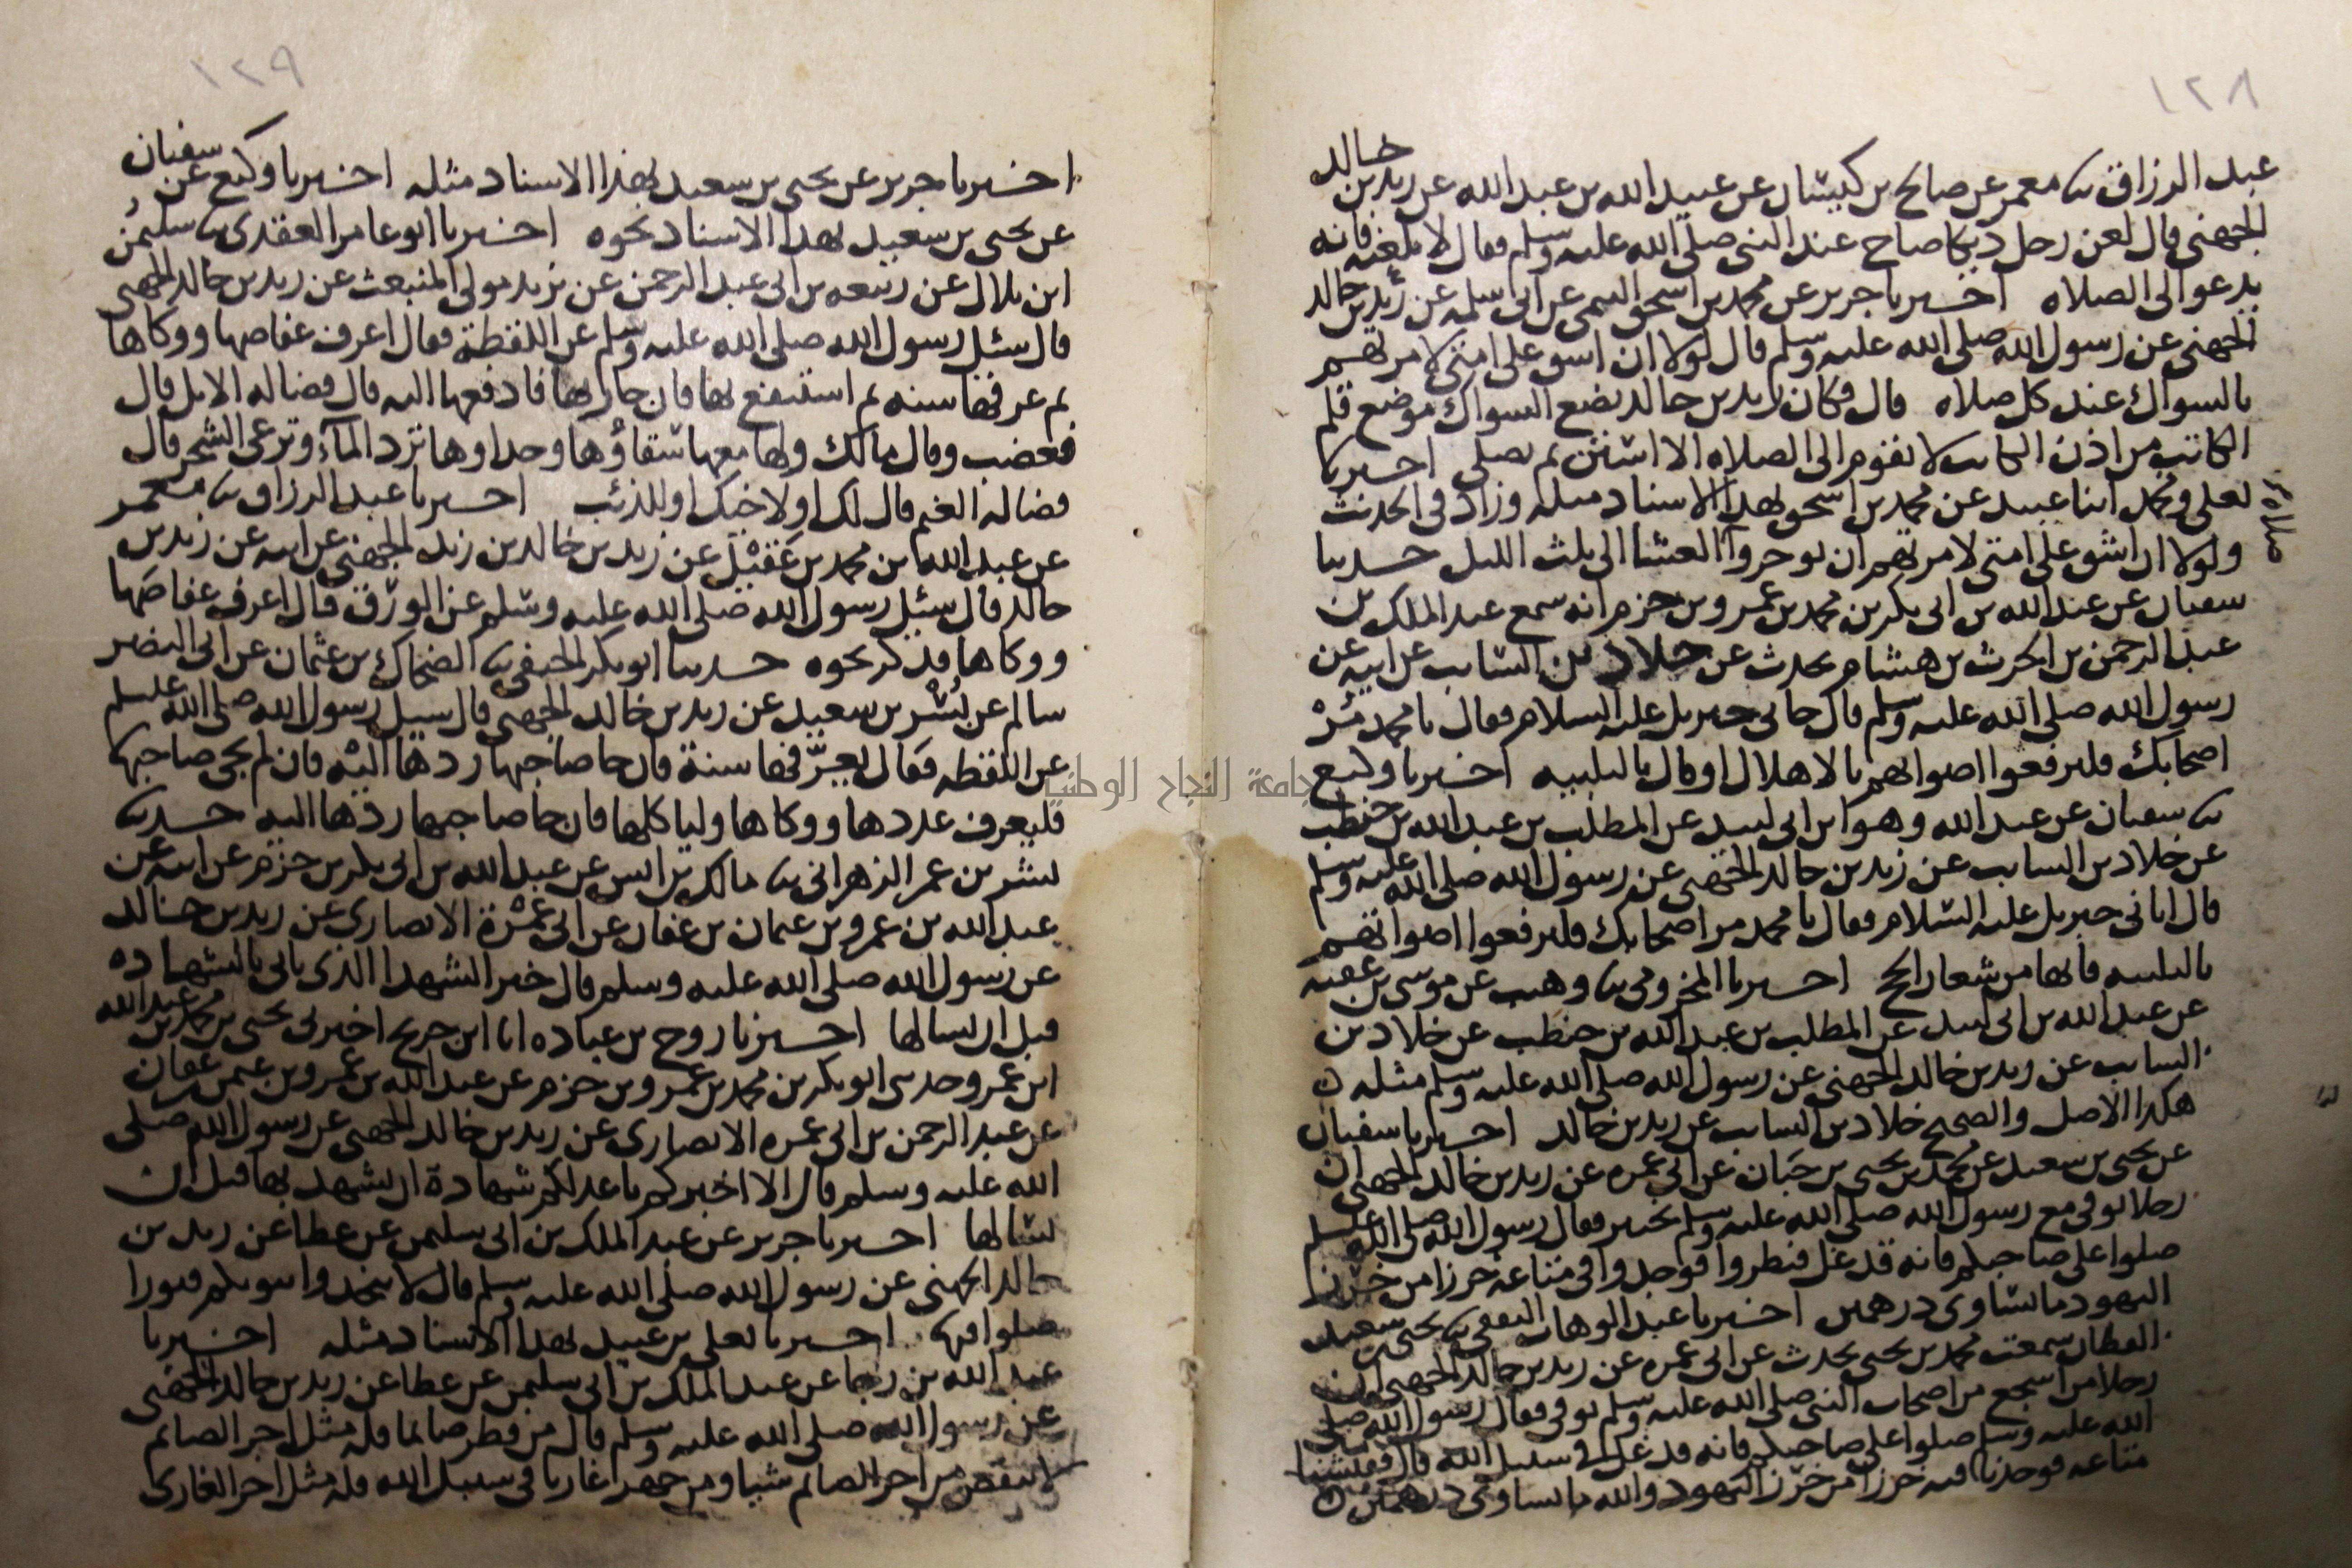 ١٢٨
عبد الرزاق نا معمر عن صالح بن كيسان عن عبيد الله بن عبد الله عن زيد بن خالد
الجهني قال لعن رجل ديكا صاح عند النبي صلى الله عليه وسلم فقال لا تلعنه فانه
يدعو الى الصلاه اخبرنا جرير عن محمد بن اسحق التيمي عن ابي سلمه عن زيد بن خالد
الجهني عن رسول الله صلى الله عليه وسلم قال لولا ان اشق على امتي لامرتهم
بالسواك عند كل صلاه قال فكان زيد بن خالد يضع السواك موضع قلم
الكاتب من اذن الكاتب لا يقوم الى الصلاه الا استن ثم يصلي اخبرنا
يعلى ومحمد ابنا عبيد عن محمد بن اسحق بهذا الاسناد مثله وزاد في الحديث
ولولا ان اشق على امتي لامرتهم ان يوخروا العشا الى ثلث الليل حدثنا
صلاة
سفيان عن عبد الله بن ابي بكر بن محمد بن عمرو بن حزم انه سمع عبد الملك بن
عبد الرحمن بن الحرث بن هشام يحدث عن خلاد بن السائب عن ابيه عن
رسول الله صلى الله عليه وسلم قال جاني جبريل عليه السلام فقال يا محمد مُرْ
اصحابك فليرفعوا اصواتهم بالاهلال او قال بالتلبيه اخبرنا وكيع
نا سفيان عن عبد الله وهو ابن ابي لبيد عن المطلب بن عبد الله بن حنطب
عن خلاد بن السايب عن زيد بن خالد الجهني عن رسول الله صلى الله عليه وسلم
قال اتاني جبريل عليه السلام فقال يا محمد مر اصحابك فليرفعوا اصواتهم
بالتلبيه فانها من شعار الحج اخبرنا المخزومي نا وهيب عن موسى بن عقبه
عن عبد الله بن ابي لبيد عن المطلب بن عبد الله بن حنطب عن خلاد بن
السايب عن زيد بن خالد الجهني عن رسول الله صلى الله عليه وسلم مثله
هكذا الاصل والصحيح خلاد بن السايب عن زيد بن خالد اخبرنا سفيان
عن يحيى بن سعيد عن محمد بن يحيى بن حَبان عن ابي عمره عن زيد بن خالد الجهني ان
رجلا توفي مع رسول الله صلى الله عليه وسلم بخيبر فقال رسول الله صلى الله عليه وسلم
صلوا على صاحبكم فانه قد غل فنظروا فوجدوا في متاعه خرزا من خرز
اليهود ما يساوي درهمين اخبرنا عبد الوهاب الثقفي نا يحيى بن سعيد
القطان سمعت محمد بن يحيى يحدث عن ابي عمره عن زيد بن خالد الجهني ان
رجلا من اشجع من اصحاب النبي صلى الله عليه وسلم توفي فقال رسول الله صلى
الله عليه وسلم صلوا على صاحبكم فانه قد غل في سبيل الله قال ففتشنا
متاعه فوجدنا فيه خرزا من خرز اليهود والله ما يساوي درهمين
١٢٩
اخبرنا جرير عن يحيى بن سعيد بهذا الاسناد مثله اخبرنا وكيع عن سفيان
عن يحيى بن سعيد بهذا الاسناد نحوه اخبرنا ابو عامر العقدي نا سليمن
ابن بلال عن ربيعه بن ابي عبد الرحمن عن يزيد مولى المنبعث عن زيد بن خالد الجهني
قال سئل رسول الله صلى الله عليه وسلم عن اللقطة فقال اعرف عفاصها ووكاها
ثم عرفها سنه ثم استنفع بها فان جا ربها فادفعها اليه قال فضاله الابل قال
فغضب وقال مالك ولها معها سقاؤها وحداوها ترد الماء وترعى الشجر قال
فضاله الغنم قال لك او لاخيك او للذئب اخبرنا عبد الرزاق نا معمر
عن عبد الله بن محمد بن عَقِيْل عن زيد بن خالد بن زيد الجهني عن ابيه عن زيد بن
خالد قال سئل رسول الله صلى الله عليه وسلم عن الورق قال اعرف عفاصها
ووكاها فذكر نحوه حدثنا ابو بكر الحنفي نا الضحاك بن عثمان عن ابي النضر
سالم عن بُسْر بن سعيد عن زيد بن خالد الجهني قال سيل رسول الله صلى الله عليه وسلم
عن اللقطه فقال يعرّفها سنة فان جا صاحبها ردها اليه فان لم يجي صاحبها
فليعرف عددها ووكاها وليا كلها فان جا صاحبها ردها اليه حدثنا
بشر بن عمر الزهراني نا مالك بن انس عن عبد الله بن ابي بكر بن حزم عن ابيه عن
عبد الله بن عمرو بن عثمان بن عفان عن ابي عَمْرَة الانصاري عن زيد بن خالد
عن رسول الله صلى الله عليه وسلم قال خير الشهدا الذي ياتي بالشهاده
قبل ان يسالها اخبرنا روح بن عباده انا ابن جريج اخبرني يحيى بن محمد بن عبد الله
ابن عمرو حدثني ابو بكر بن محمد بن عمرو بن حزم عن عبد الله بن عمرو بن عثمن بن عفان
عن عبد الرحمن بن ابي عمره الانصاري عن زيد بن خالد الجهني عن رسول الله صلى
الله عليه وسلم قال الا اخبركم باعدلكم شهادة ان يشهد بها قبل ان
يسالها اخبرنا جرير عن عبد الملك بن ابي سليمن عن عطا عن زيد بن
خالد الجهني عن رسول الله صلى الله عليه وسلم قال لا تتخذوا بيوتكم قبورا
صلوا فيها اخبرنا يعلى بن عبيد بهذا الاسناد مثله اخبرنا
عبد الله بن رجا عن عبد الملك بن ابي سليمن عن عطا عن زيد بن خالد الجهني
عن رسول الله صلى الله عليه وسلم قال من فطر صائما فله مثل اجر الصائم
لا ينقص من اجر الصائم شيا ومن جهز غازيا في سبيل الله فله مثل اجر الغازي
جامعة النجاح الوطنية